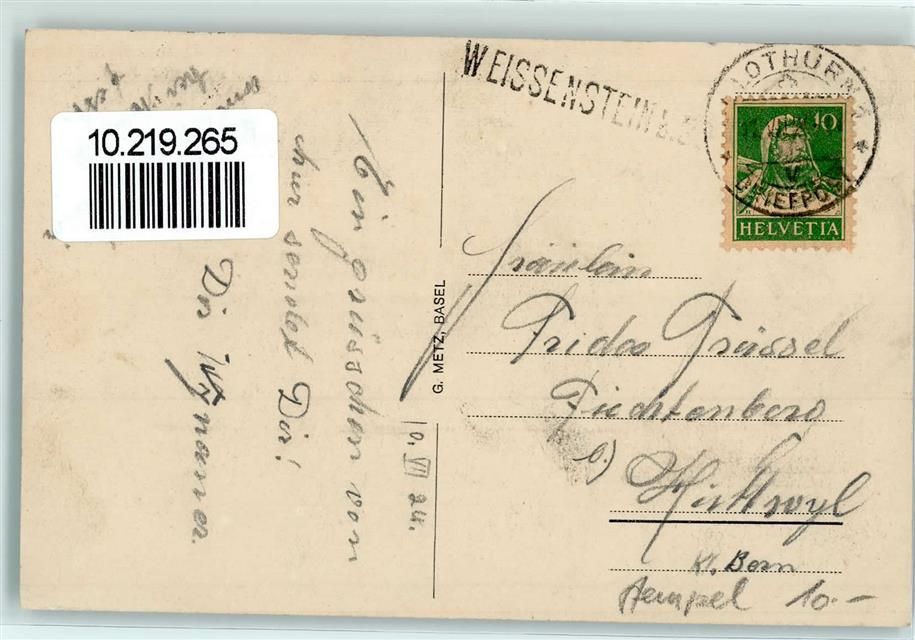 10.219.265
WEISSENSTEIN b.S.
SOLOTHURN 1
BRIEFPOST
10
HELVETIA
10. VII 24.
Ein grüsschen von
hier sendet Dir!
G. METZ, BASEL
Fräulein
Frida Grässel
Fiechtenberg
b)
Huttwyl
Kt. Bern
Stempel 10.-